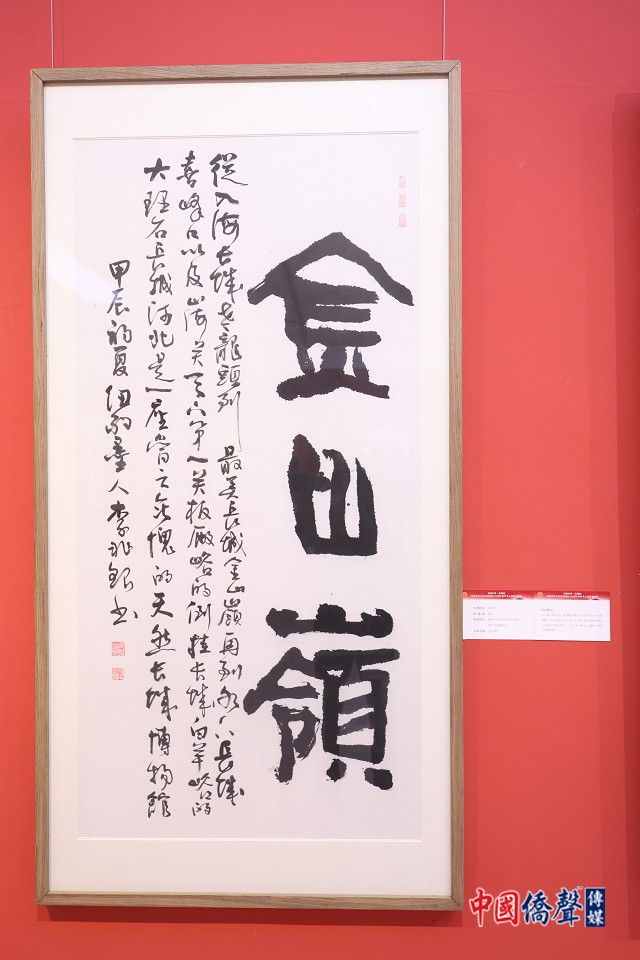 金山嶺
從入海长城老龍頭到 最美長城金山嶺再到水下長城
喜峰口以及山海关天下第一关板厰峪的倒挂长城白羊峪的
大理石長城河北是一座當之无愧的天然长城博物館
甲辰初夏 墨人李 书
中國僑聲
傳媒